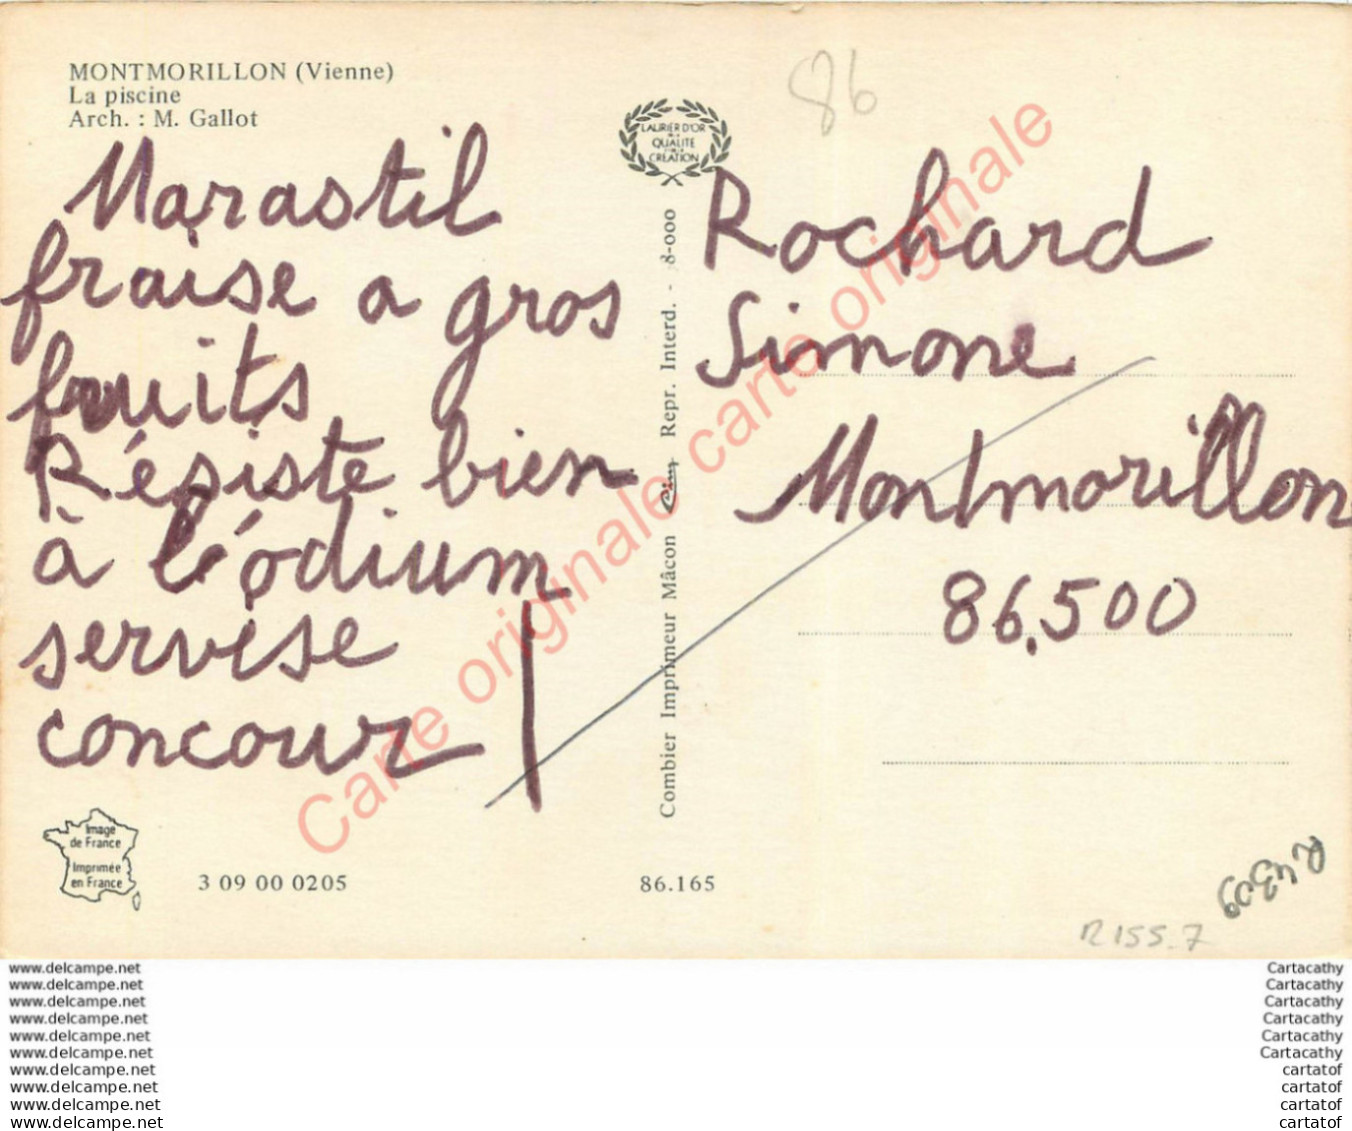 MONTMORILLON (Vienne)
La piscine
Arch. : M. Gallot
Marastil
fraise a gros
fruits
Résiste bien
à l'ódium
servise
concour
86
LAURIER D'OR
DE LA
QUALITÉ
CRÉATION
Combier Imprimeur Mâcon Cim Repr. Interd. - 8-000
Rochard
Simone
Montmorillon
86.500
Carte originale carte originale
Image
de France
Imprimée
en France
3 09 00 0205
86.165
R 4309
R155.7
www.delcampe.net
www.delcampe.net
www.delcampe.net
www.delcampe.net
www.delcampe.net
www.delcampe.net
www.delcampe.net
www.delcampe.net
www.delcampe.net
www.delcampe.net
Cartacathy
Cartacathy
Cartacathy
Cartacathy
Cartacathy
Cartacathy
cartatof
cartatof
cartatof
cartatof